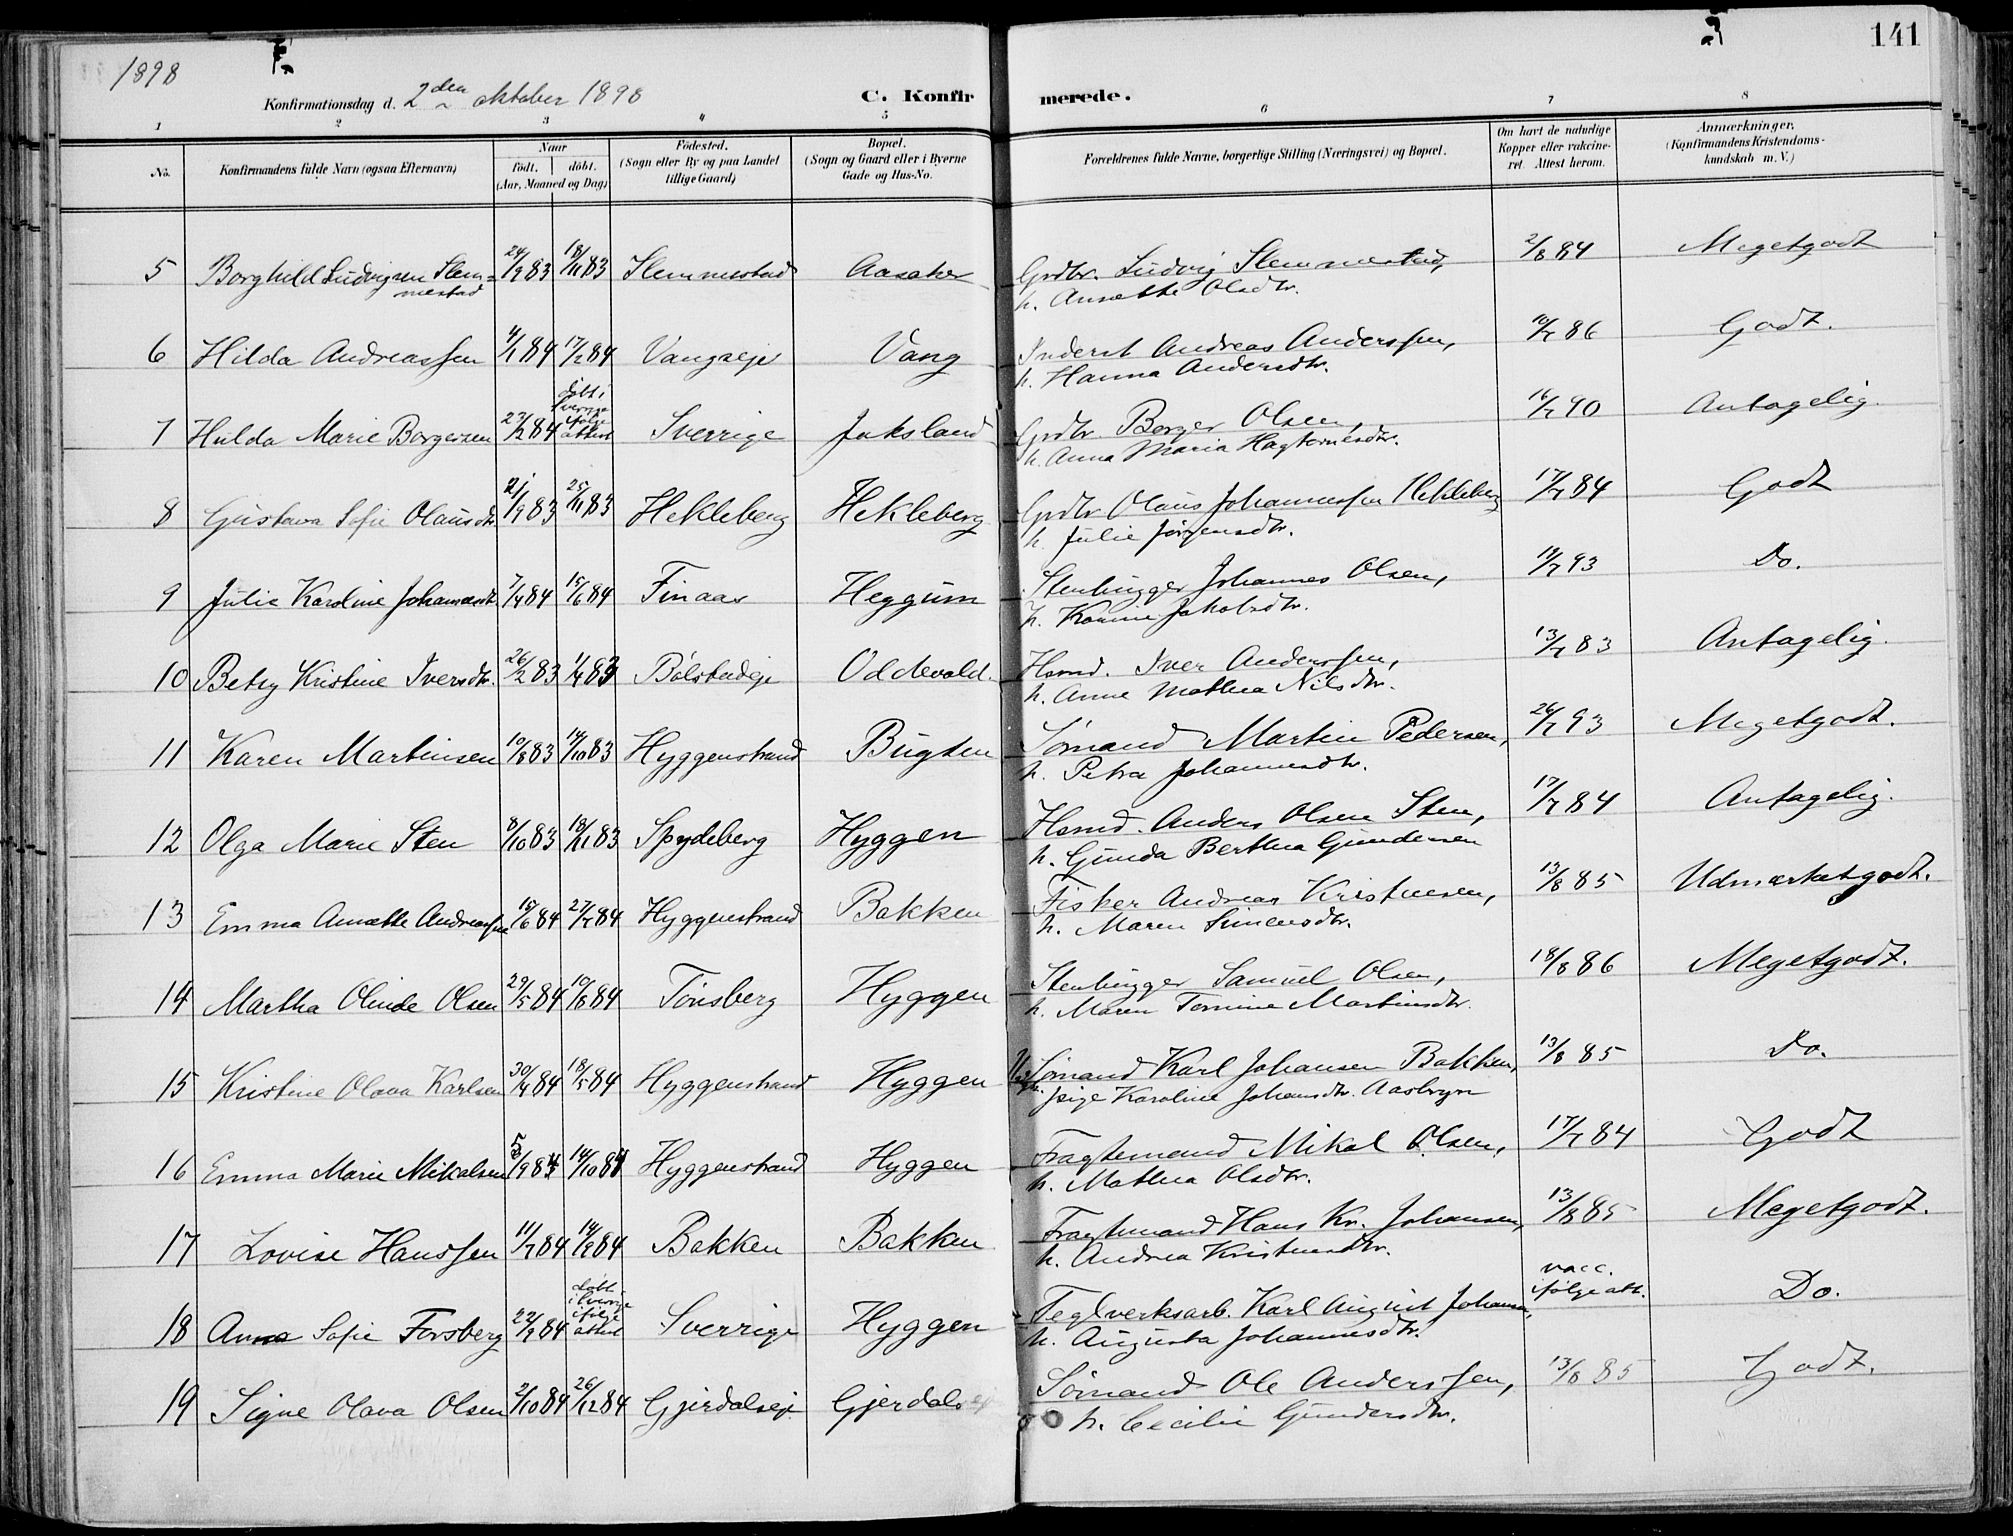 1898
Konfirmationsdag d. 2den oktober 1898
C. Konfirmerede.
141
1 2 3 4 5 6 7 8
No. Konfirmandens fulde Navn (ogsaa Efternavn) Naar födt. döbt. (Aar, Maaned og Dag) Födested. (Sogn eller By og paa Landet tillige Gaard) Bopæl. (Sogn og Gaard eller i Byerne Gade og Hus-No. Forældrenes fulde Navne, borgerlige Stilling (Næringsvei) og Bopæl. Om havt de naturlige Kopper eller vakcineret. Attest herom. Anmærkninger. (Konfirmandens Kristendomskundskab m. V.)
5 Borghild Ludvigsen Slemmestad 24/9 83 18/11 83 Slemmestad Aasaker Grdbr. Ludvig Slemmestad, 2/8 84 Megetgodt
h. Annette Olsdtr.
6 Hilda Andreassen 4/1 84 17/2 84 Vangseje Vang Inderst Andreas Anderssen, 10/7 86 Godt.
h. Hanna Andersdtr.
7 Hulda Marie Borgersen 23/2 84 döbt i Sverige ifølge attest Sverrige Jaksland Grdbr. Borger Olsen, 16/7 90 Antagelig.
h. Anna Maria
8 Gustava Sofie Olausdtr 21/9 83 25/11 83 Hekleberg Hekleberg Grdbr Olaus Johannessen Hekleberg 17/7 84 Godt
h. Julie Jørgensdtr.
9 Julie Karoline Johansdtr 7/4 84 15/6 84 Finaas Heggum Stenhugger Johannes Olsen, 19/7 93 Do.
h. Karine Jakobsdtr.
10 Betsy Kristine Iversdtr. 26/2 83 1/4 83 Bölstadeje Oddevald. Hsmd. Iver Anderssen, 13/7 83 Antagelig.
h. Anne Mathea Nilsdtr.
11 Karen Martinsen 10/8 83 14/10 83 Hyggenstrand Bugten Sömand Martin Pedersen, 26/7 93 Megetgodt.
h. Petra Johannesdtr.
12 Olga Marie Sten 8/10 83 18/11 83 Spydeberg Hyggen Hsmd. Anders Olsen Sten, 17/7 84 Antagelig.
h. Gunda Berthea Gundersen
13 Emma Annette Andreassen 15/6 84 27/7 84 Hyggenstrand Bakken Fisker Andreas Kristensen, 13/8 85 Udmærketgodt.
h. Maren Simensdtr.
14 Martha Olinde Olsen 29/5 84 10/8 84 Tönsberg Hyggen Stenhugger Samuel Olsen, 18/8 86 Megetgodt.
h. Maren Tomine Martinsdtr.
15 Kristine Olava Karlsen 30/4 84 18/5 84 Hyggenstrand Hyggen Sömand Karl Johansen Bakken, 13/8 85 Do.
pige Karoline Johansdtr. Aasbryn
16 Emma Marie Mikalsen 5/9 84 14/10 84 Hyggenstrand Hyggen Fragtemand Mikal Olsen, 17/7 84 Godt
h. Mathea Olsdtr.
17 Lovise Hanssen 11/7 84 14/9 84 Bakken Bakken Fragtemand Hans Kr. Johansen, 13/8 85 Megetgodt.
h. Andrea Kristensdtr.
18 Anna Sofie Forsberg 22/9 84 döbt i Sverige ifølge attest Sverrige Hyggen Teglverksarb. Karl August Johansen, vacc. ifølge att. Do.
h. Augusta Johannesdtr.
19 Signe Olava Olsen 2/10 84 26/12 84 Gjerdalseje Gjerdalsej Sömand Ole Anderssen, 13/8 85 Godt.
h. Cecilie Gundersdtr.